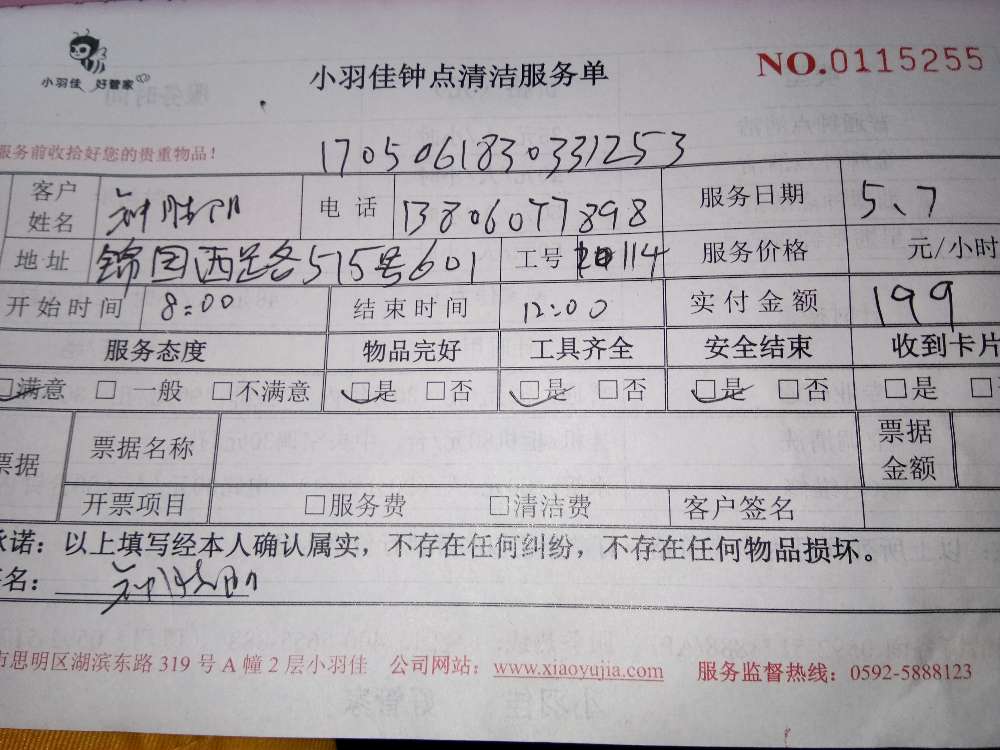 小羽佳 好管家
小羽佳钟点清洁服务单
NO.0115255
服务前收拾好您的贵重物品!
170506183033 1253
客户姓名 电话 13806077898 服务日期 5、7
地址 锦园西路515号601 工号 114 服务价格 元/小时
开始时间 8:00 结束时间 12:00 实付金额 199
服务态度 物品完好 工具齐全 安全结束 收到卡片
□满意 □一般 □不满意 □是 □否 □是 □否 □是 □否 □是
票据 票据名称 票据金额
开票项目 □服务费 □清洁费 客户签名
承诺:以上填写经本人确认属实,不存在任何纠纷,不存在任何物品损坏。
签名:
市思明区湖滨东路 319 号 A 幢 2 层小羽佳 公司网站:www.xiaoyujia.com 服务监督热线:0592-5888123